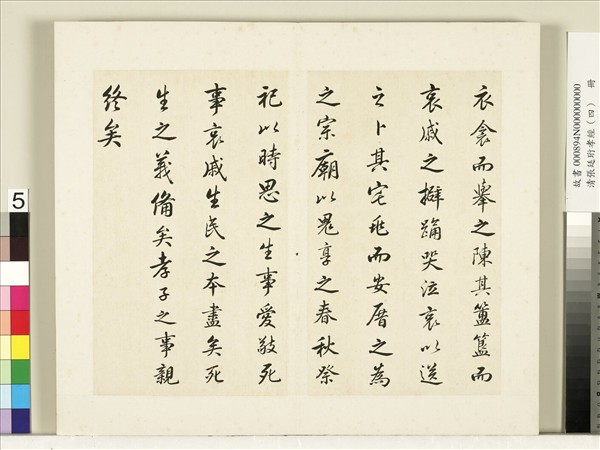 衣衾而舉之陳其簠簋而
哀戚之擗踊哭泣哀以送
之卜其宅兆而安厝之為
之宗廟以鬼享之春秋祭
祀以時思之生事愛敬死
事哀戚生民之本盡矣死
生之義備矣孝子之事親
終矣
故書 000894N000000000
清張廷珩孝經（四） 冊
5